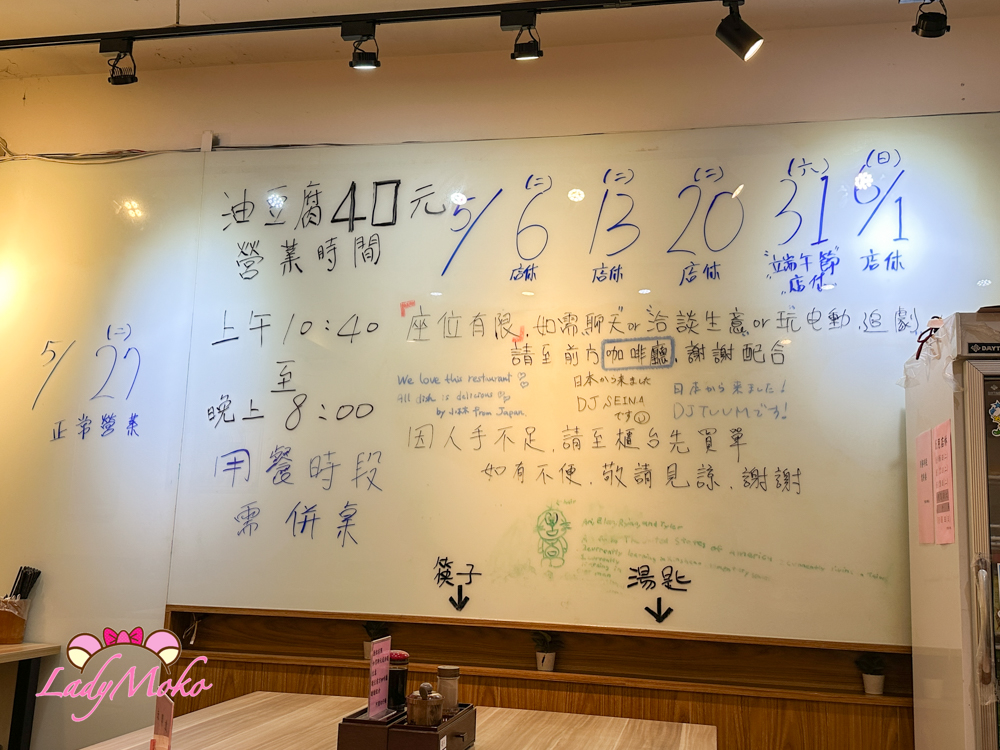 油豆腐40元
營業時間
上午10:40
至
晚上8:00
用餐時段
需併桌
5/
(二)
27
正常營業
5/
(二)
6
店休
(二)
13
店休
(二)
20
店休
(六)
31
"端午節"
店休
(日)
6/1
店休
「座位有限」如需聊天or洽談生意or玩电動、追劇
請至前方咖啡廳、謝謝配合
We love this restaurant
All dish is delicious
by from Japan
日本から来ました
DJ SEINA
です
日本から来ました!
DJ TUUMです!
因人手不足、請至櫃台先買單
如有不便、敬請見諒、謝謝
筷子
湯匙
LadyMoko